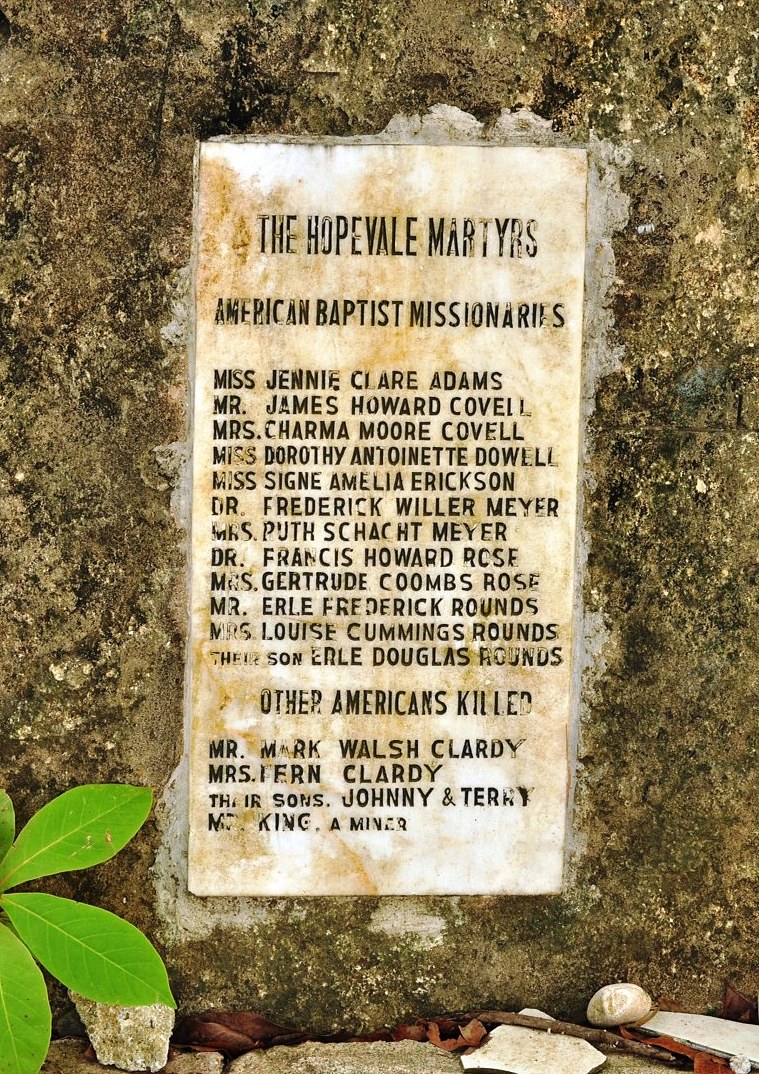 THE HOPEVALE MARTYRS
AMERICAN BAPTIST MISSIONARIES
MISS JENNIE CLARE ADAMS
MR. JAMES HOWARD COVELL
MRS. CHARMA MOORE COVELL
MISS DOROTHY ANTOINETTE DOWELL
MISS SIGNE AMELIA ERICKSON
DR. FREDERICK WILLER MEYER
MRS. RUTH SCHACHT MEYER
DR. FRANCIS HOWARD ROSE
MRS. GERTRUDE COOMBS ROSE
MR. ERLE FREDERICK ROUNDS
MRS. LOUISE CUMMINGS ROUNDS
THEIR SON ERLE DOUGLAS ROUNDS
OTHER AMERICANS KILLED
MR. MARK WALSH CLARDY
MRS. FERN CLARDY
THEIR SONS. JOHNNY & TERRY
MR. KING. A MINER